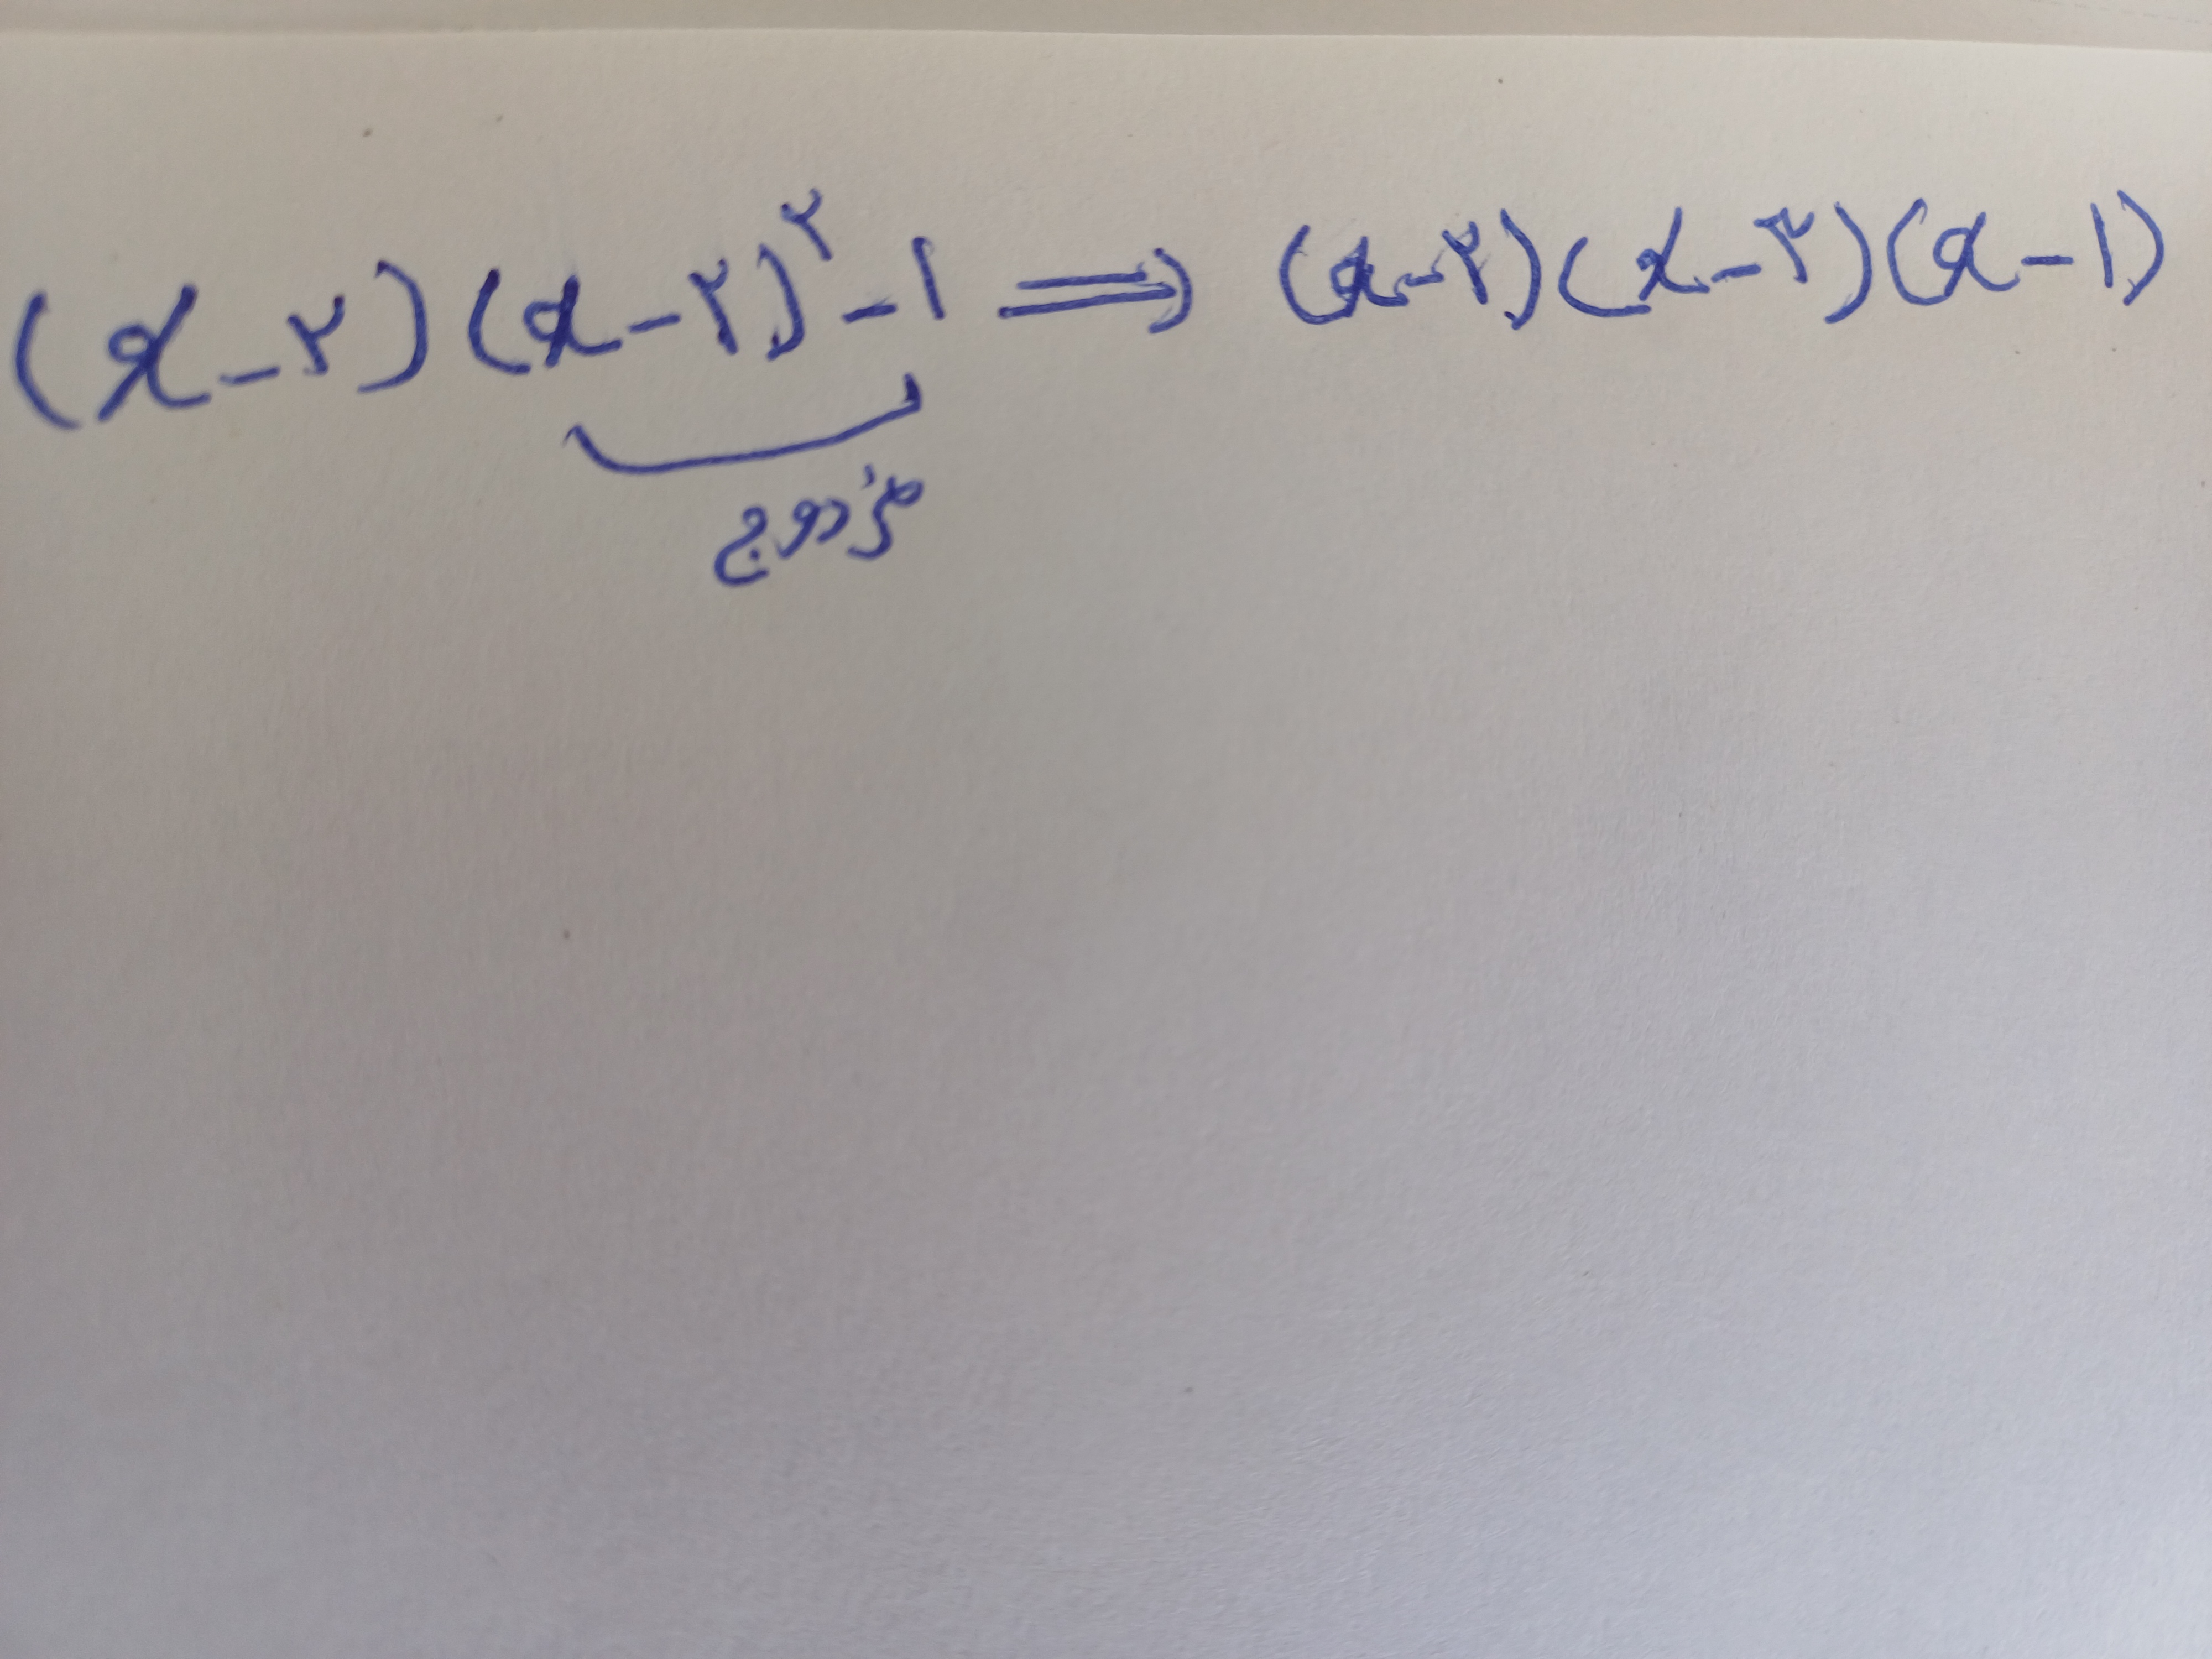 (x-۲)(x-۲)^۲-۱ ⇒ (x-۲)(x-۳)(x-۱)
مزدوج